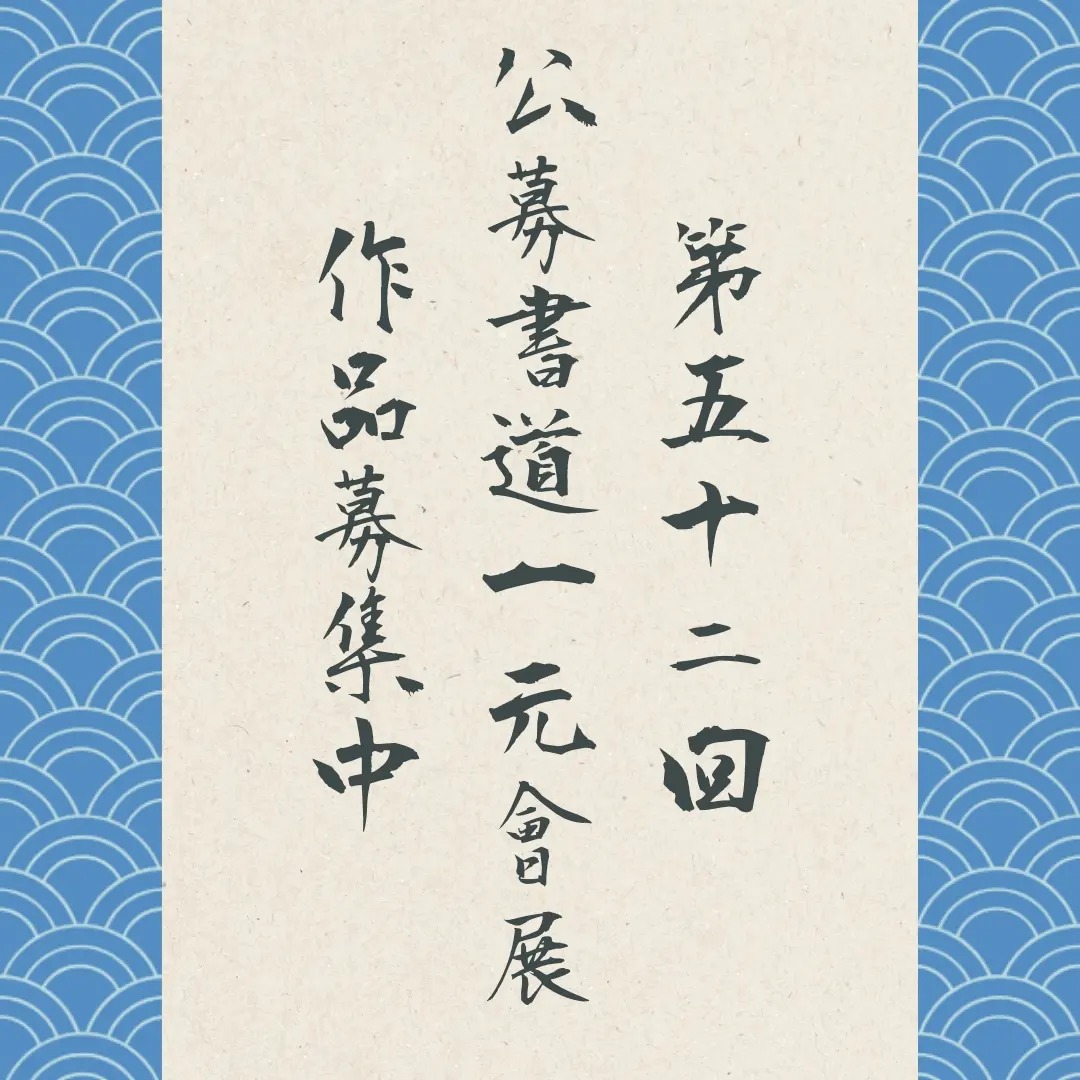 第五十二回
公募書道一元會展
作品募集中